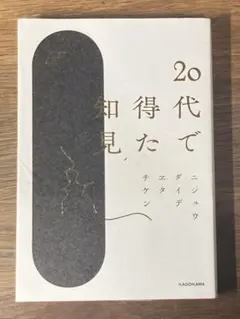 20代で
得た
知見
ニジュウ
ダイデ
エタ
チケン
KADOKAWA